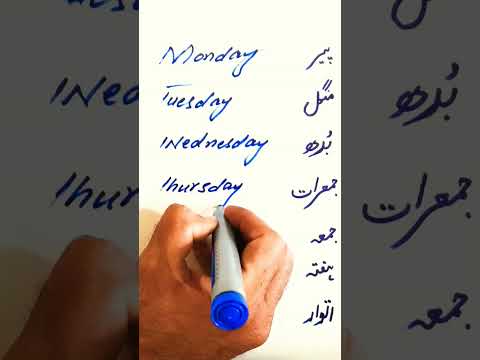 Monday پیر
Tuesday منگل
Wednesday بُدھ
Thursday جمعرات
جمعہ
ہفتہ
اتوار